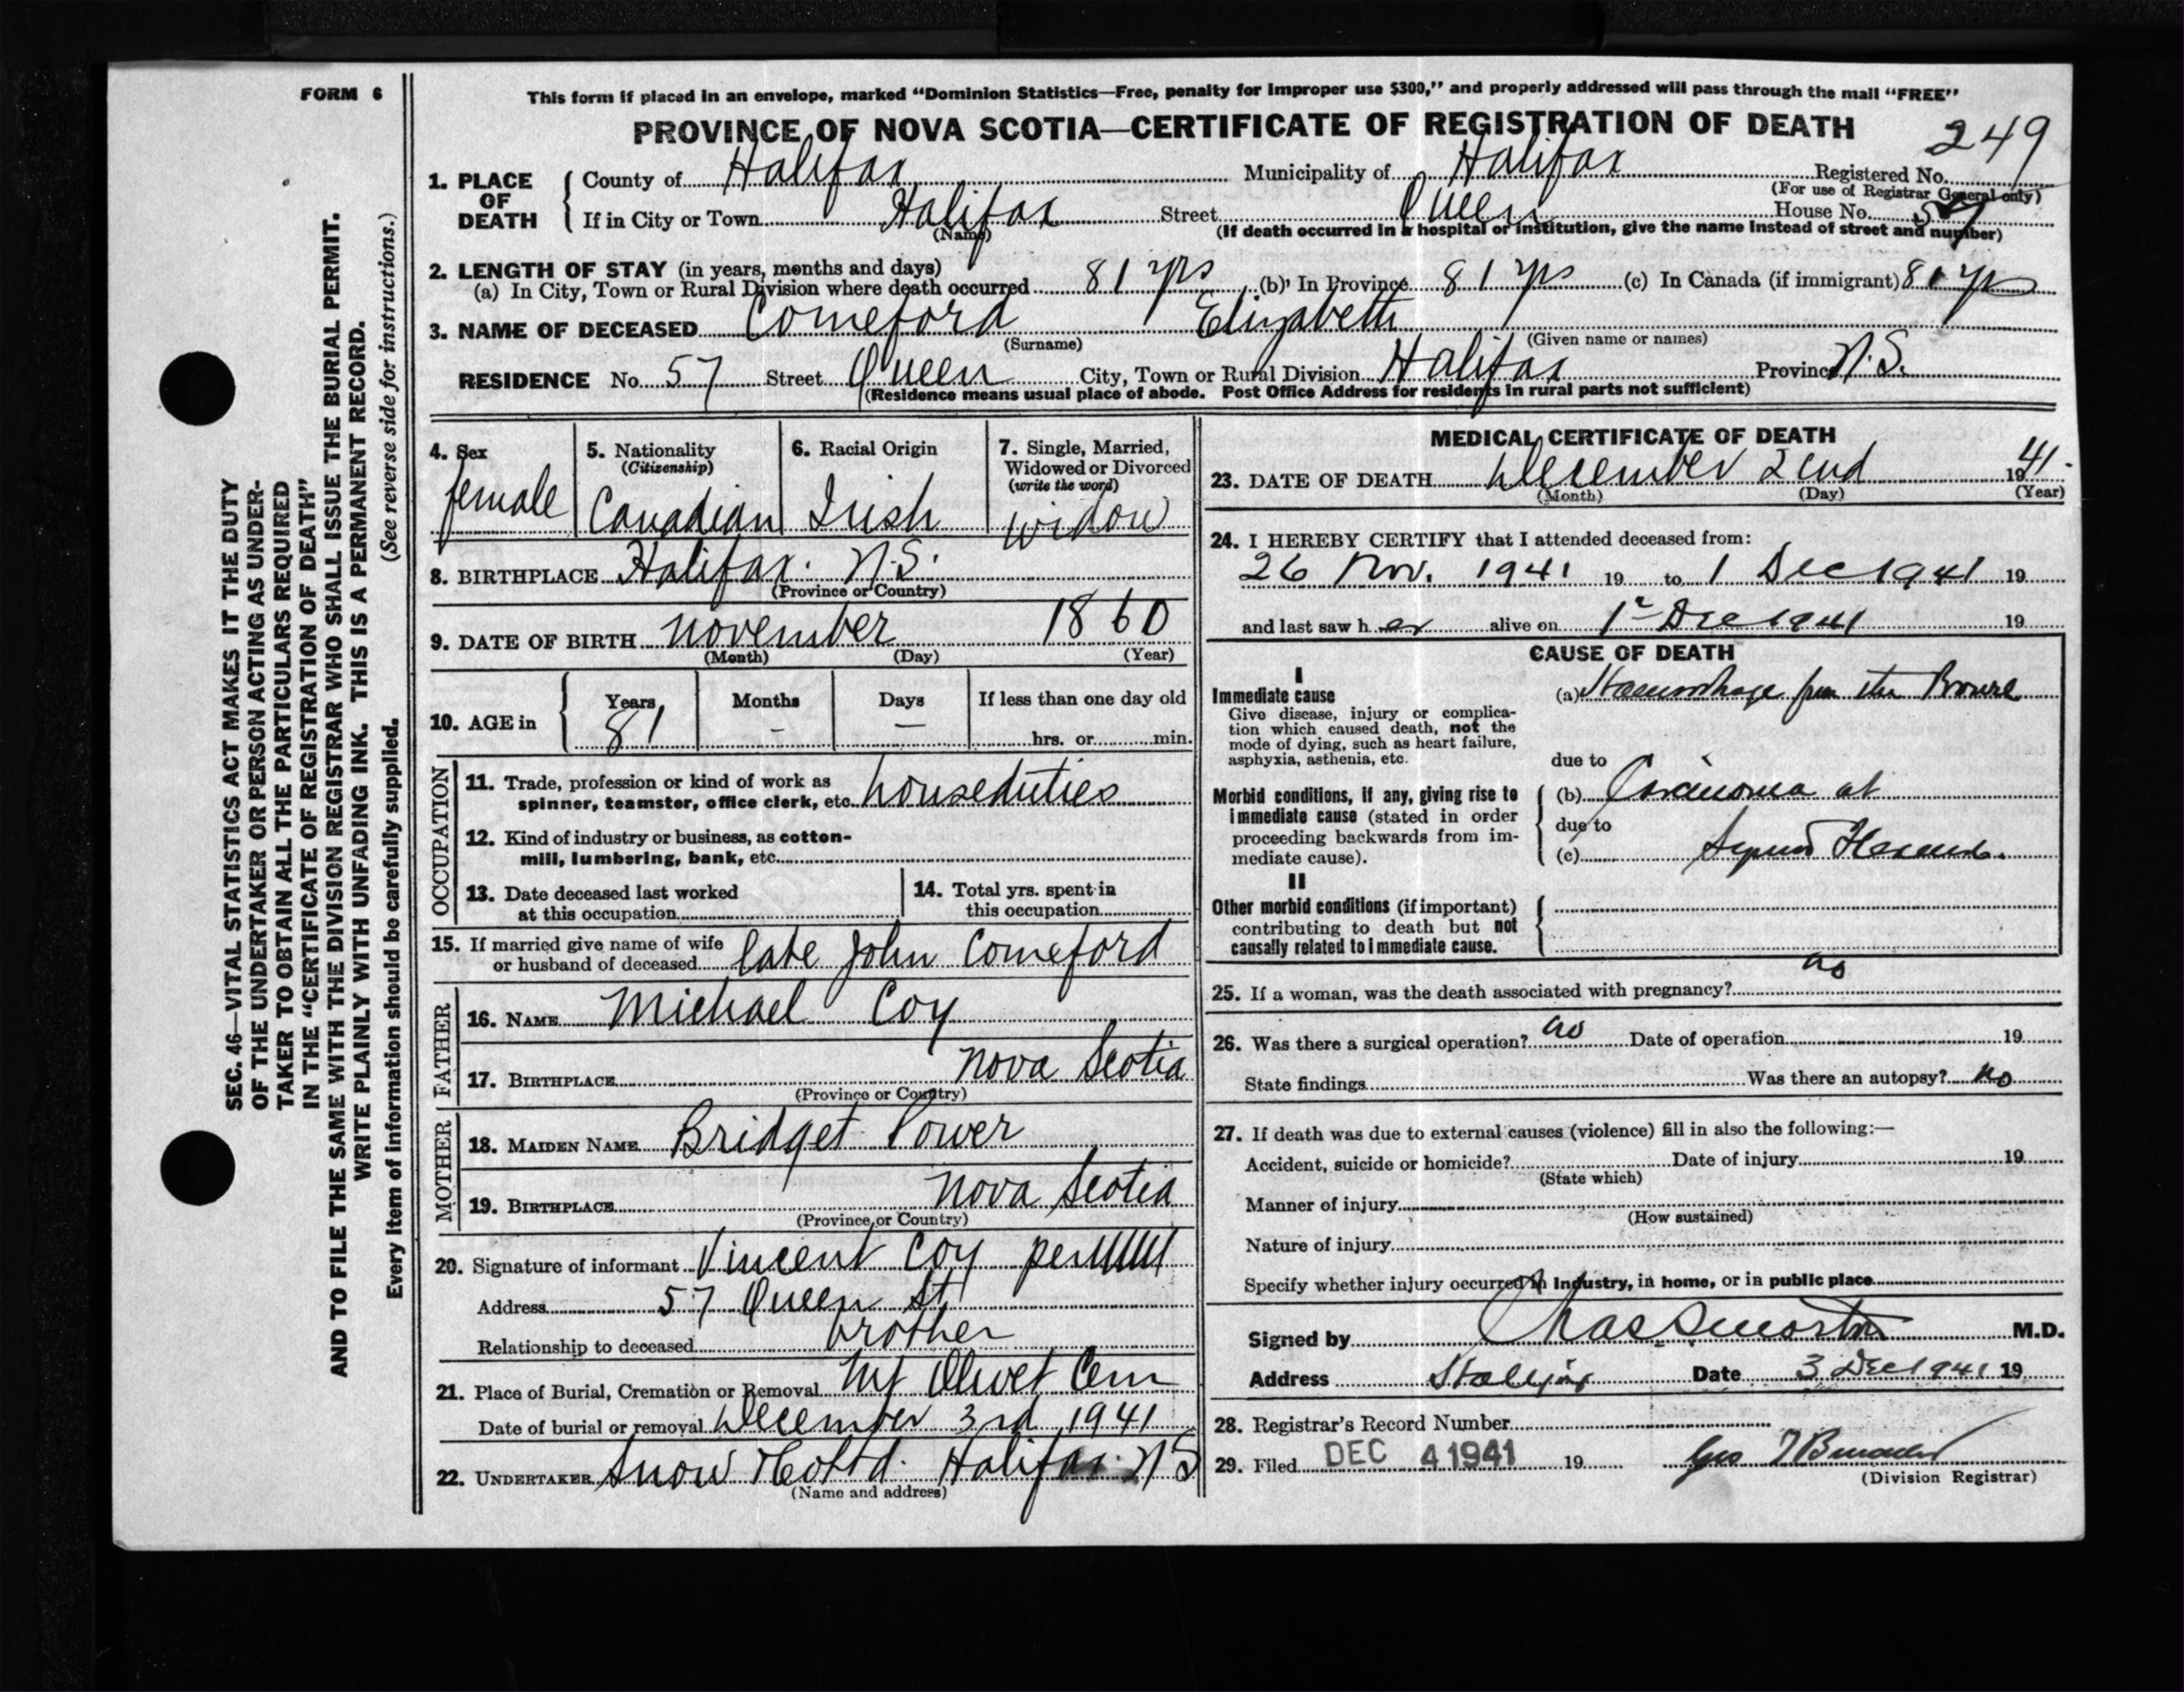 FORM 6
This form if placed in an envelope, marked "Dominion Statistics—Free, penalty for improper use $300," and properly addressed will pass through the mail "FREE"
PROVINCE OF NOVA SCOTIA—CERTIFICATE OF REGISTRATION OF DEATH
249
1. PLACE OF DEATH
County of Halifax Municipality of Halifax Registered No.
(For use of Registrar General only)
If in City or Town Halifax Street Queen House No. 57
(Name) (If death occurred in a hospital or institution, give the name instead of street and number)
2. LENGTH OF STAY (in years, months and days)
(a) In City, Town or Rural Division where death occurred 81 yrs (b) In Province 81 yrs (c) In Canada (if immigrant) 81 yrs
3. NAME OF DECEASED Comeford Elizabeth
(Surname) (Given name or names)
RESIDENCE No. 57 Street Queen City, Town or Rural Division Halifax Province N.S.
(Residence means usual place of abode. Post Office Address for residents in rural parts not sufficient)
4. Sex
female
5. Nationality
(Citizenship)
Canadian
6. Racial Origin
Irish
7. Single, Married,
Widowed or Divorced
(write the word)
widow
8. BIRTHPLACE Halifax. N.S.
(Province or Country)
9. DATE OF BIRTH November 1860
(Month) (Day) (Year)
10. AGE in
Years Months Days If less than one day old
81 - — hrs. or min.
OCCUPATION
11. Trade, profession or kind of work as
spinner, teamster, office clerk, etc. houseduties
12. Kind of industry or business, as cotton-
mill, lumbering, bank, etc.
13. Date deceased last worked
at this occupation
14. Total yrs. spent in
this occupation
15. If married give name of wife
or husband of deceased late John Comeford
FATHER
16. NAME Michael Coy
17. BIRTHPLACE Nova Scotia
(Province or Country)
MOTHER
18. MAIDEN NAME Bridget Power
19. BIRTHPLACE Nova Scotia
(Province or Country)
20. Signature of informant Vincent Coy per
Address 57 Queen St.
Relationship to deceased brother
21. Place of Burial, Cremation or Removal Mt Olivet Cem
Date of burial or removal December 3rd 1941
22. UNDERTAKER Snow & Co Ltd. Halifax N S
(Name and address)
MEDICAL CERTIFICATE OF DEATH
23. DATE OF DEATH December 2nd 1941.
(Month) (Day) (Year)
24. I HEREBY CERTIFY that I attended deceased from:
26 Nov. 1941 19 to 1 Dec 1941 19
and last saw her alive on 1 Dec 1941 19
CAUSE OF DEATH
I
Immediate cause
Give disease, injury or complica-
tion which caused death, not the
mode of dying, such as heart failure,
asphyxia, asthenia, etc.
(a) Haemorrhage from the Bowel
due to
Morbid conditions, if any, giving rise to
immediate cause (stated in order
proceeding backwards from im-
mediate cause).
(b) Carcinoma at
due to
(c) Sigmoid Flexure.
II
Other morbid conditions (if important)
contributing to death but not
causally related to immediate cause.
25. If a woman, was the death associated with pregnancy? no
26. Was there a surgical operation? no Date of operation 19
State findings Was there an autopsy? no
27. If death was due to external causes (violence) fill in also the following:—
Accident, suicide or homicide? Date of injury 19
(State which)
Manner of injury
(How sustained)
Nature of injury
Specify whether injury occurred in industry, in home, or in public place
Signed by M.D.
Address Halifax Date 3 Dec 1941 19
28. Registrar's Record Number
29. Filed DEC 4 1941 19
(Division Registrar)
SEC. 46—VITAL STATISTICS ACT MAKES IT THE DUTY
OF THE UNDERTAKER OR PERSON ACTING AS UNDER-
TAKER TO OBTAIN ALL THE PARTICULARS REQUIRED
IN THE "CERTIFICATE OF REGISTRATION OF DEATH"
AND TO FILE THE SAME WITH THE DIVISION REGISTRAR WHO SHALL ISSUE THE BURIAL PERMIT.
WRITE PLAINLY WITH UNFADING INK. THIS IS A PERMANENT RECORD.
(See reverse side for instructions.)
Every item of information should be carefully supplied.